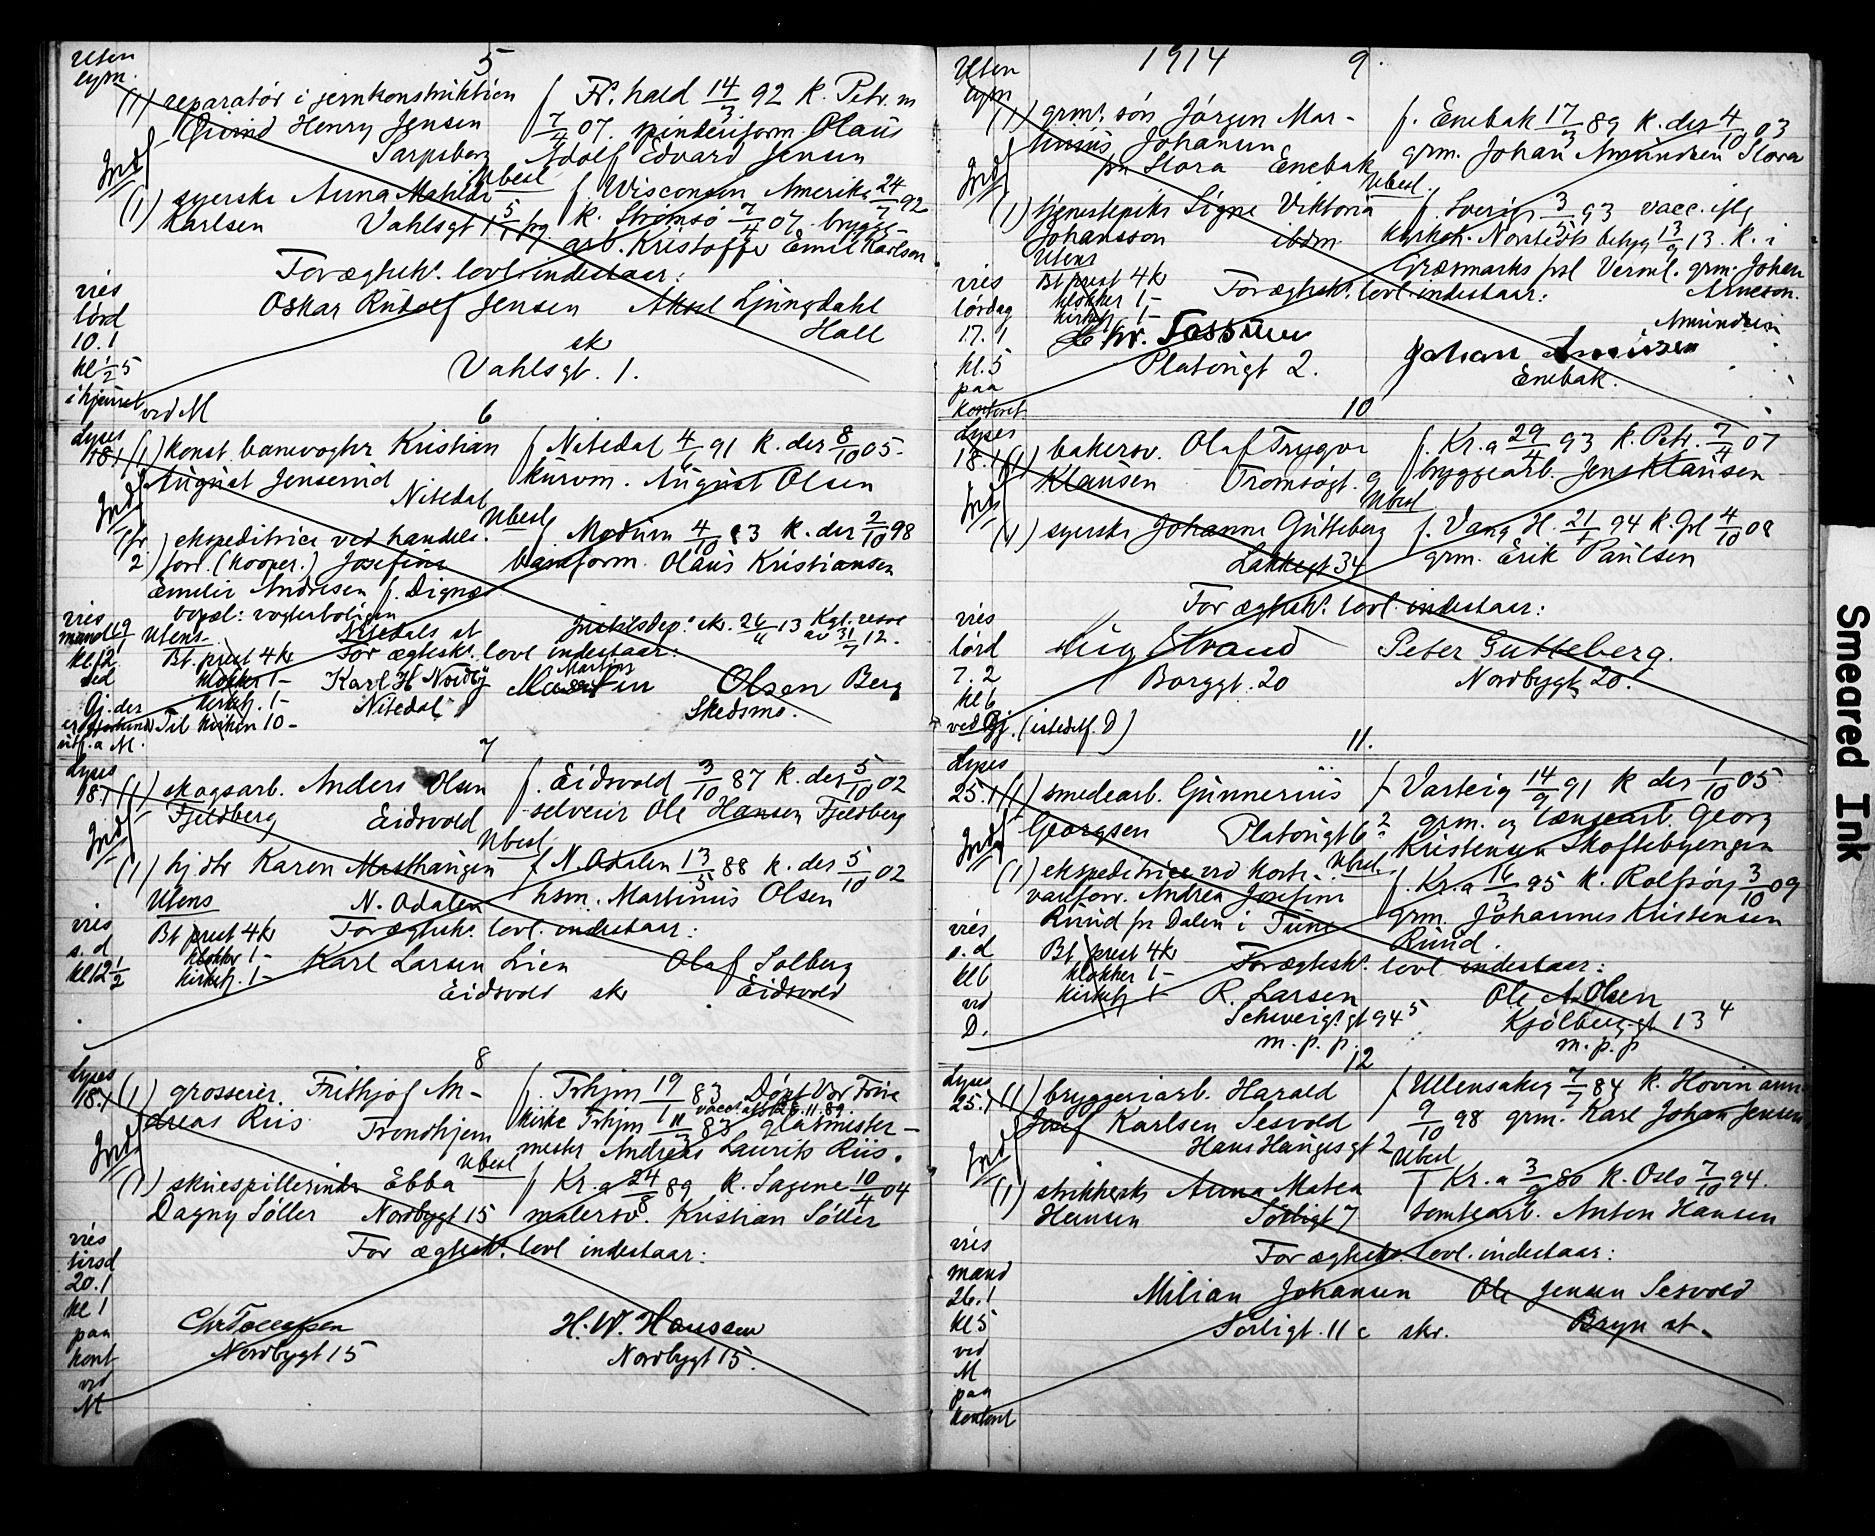 5
Uten
lysn.
(1) reparatør i jernkonstruktion
Henry Jensen
Sarpsborg
f. Fr. hald 14/7 92 k. Petr. m
7/4 07. spinderiform. Olaus
Adolf Edvard Jensen
Indf
Ubesl
(1) syerske Anna Matilde
Karlsen Vahlsgt 1
f. Wisconsin Amerika 24/7 92
k. Strømsø 7/4 07. brygge-
arb. Kristoffer Emil Karlson
For ægtesk. lovl. indestaar:
Oskar Rudolf Jensen Aksel Ljungdahl
Hall
sk
Vahlsgt. 1.
vies
lørd
10.1
kl 1/2 5
i hjemmet
ved M
6
Lyses
18.1 (1) konst. banevogter Kristian
August Jenserud
Nitedal
f. Nitedal 4/6 91 k. der 8/10 05.
kurvm. August Olsen
Indf
Ubesl
(fr. 2) ekspeditrice ved handels-
forr. (kooper.) Josefine
Emelie Andresen f. Dignæs
bopæl: vogterboligen
Nitedals st
f. Modum 4/10 83 k. der 2/10 98
baneform. Olaus Kristiansen
Justitsdep. sk. 26/11 13 Kgl. reso
av 31/7 12.
vies
mand 19
kl 12
ved
Gj. der
Utens
Bt. prest 4 kr
klokker 1-
kirketj. 1-
Til kirken 10-
For ægtesk. lovl. indestaar:
Karl H Nordby
Nitedal
Martin Olsen Berg
Skedsmo.
7
Lyses
18.1 (1) skogsarb. Anders Olsen
Fjeldberg Eidsvold
f. Eidsvold 3/10 87 k. der 5/10 02
selveier Ole Hansen Fjeldberg
Indf
Ubesl
(1) hj dtr Karen Masthaugen
N. Odalen
f. N. Odalen 13/5 88 k. der 5/10 02
hsm. Martinus Olsen
Utens
Bt prest 4 kr
klokker 1-
kirketj. 1-
vies
s. d
kl 12 1/2
For ægtesk. lovl. indestaar:
Karl Larsen Lien Olaf Solberg
Eidsvold sk Eidsvold
8
Lyses
18.1 (1) grosserer Frithjof An-
dreas Riis
Trondhjem
f. Trhjm 19/1 83 Døpt Vor Frue
kirke Trhjm 11/3 83 glasmester-
mester Andreas Laurits Riis.
Indf
Ubesl
(1) skuespillerinde Ebba
Dagny Søller Nordbygt 15
f. Kr.a 24/8 89 k. Sagene 10/4 04
malersv. Kristian Søller
For ægtesk. lovl indestaar:
vies
tirsd
20.1
kl 1
paa
kont
ved
M
Chr Tollefsen
Nordbygt 15
H. W. Hanssen
Nordbygt 15.
1914
9.
Uten
lysn
(1) grmd. søn Jørgen Mar-
Johansen
fra Stora Enebak
f. Enebak 17/3 89 k. der 4/10 03
grm. Johan Amundsen Stora
Indf
Ubesl.
(1) tjenestepike Signe Viktoria
Johansson ibdm
f. Sverige 3/5 93 vacc. iflg
kirkeb. Norsteds betyg 13/9 13. k. i
Græsmarks psl Verml. grm. Johan
Arneson.
Utens
Bt prest 4 kr
klokker 1-
kirketj 1-
For ægtesk. lovl. indestaar:
vies
lørdag
17.1
kl. 5
paa
kontoret
Chr. Fossum
Platougt 2.
Amundsen
Johan
Enebak.
10
Lyses
18.1 (1) bakersv. Olaf Trygve
Klausen Tromsøgt. 9
f. Kr.a 29/4 93 k. Petr. 7/4 07
bryggearb. Jens Klausen
Indf
Ubesl
(1) syerske Johanne Gutteberg
Lakkegt 34
f. Vang H. 21/1 94 k. Grl 4/10 08
grm. Erik Paulsen
For ægtesk. lovl. indestaar:
vies
lørd
7.2
kl 6
ved Gj. (istedetf. D)
Aug Strand
Borggt. 20
Peter Gutteberg.
Nordbygt 20.
11.
Lyses
25.1 (1) smedearb. Gunnerius
Georgsen Platougt 6 2
f Varteig 14/9 91 k der 1/10 05.
grm. og lænsearb. Georg
Kristensen Skoftebyengen
Indf
Ubesl.
(1) ekspeditrice ved kort-
vareforr. Andrea Josefine
Ruud fr Dalen i Tune
f. Kr.a 16/3 95 k. Rolfsøy 3/10 09
grm. Johannes Kristensen
Ruud.
vies
s. d
kl 6
vd
D.
Bt prest 4 kr
klokker 1-
kirketj 1-
For ægtesk. lovl indestaar:
R. Larsen
Schweigs gt 94 5
m. p. p.
Ole A Olsen
Kjølberg gt 13 4
m. p. p
12
Lyses
25.1 (1) bryggeriarb. Harald
Josef Karlsen Sesvold
Hans Haugesgt 2
f Ullensaker 7/7 84 k. Hovin ann
9/10 98 grm. Karl Johan Jensen
Indf
Ubesl
(1) strikkerske Anna Matea
Hansen Sørligt 7
f Kr.a 3/9 80 k. Oslo 7/10 94.
tomtearb. Anton Hansen
For ægtesk. lovl. indestaar:
vies
mand
26.1
kl 5
ved
M
paa
kontoret
Milian Johansen Ole Jensen Sesvold
Sørligt. 11 c skr. Bryn st.
Smeared Ink